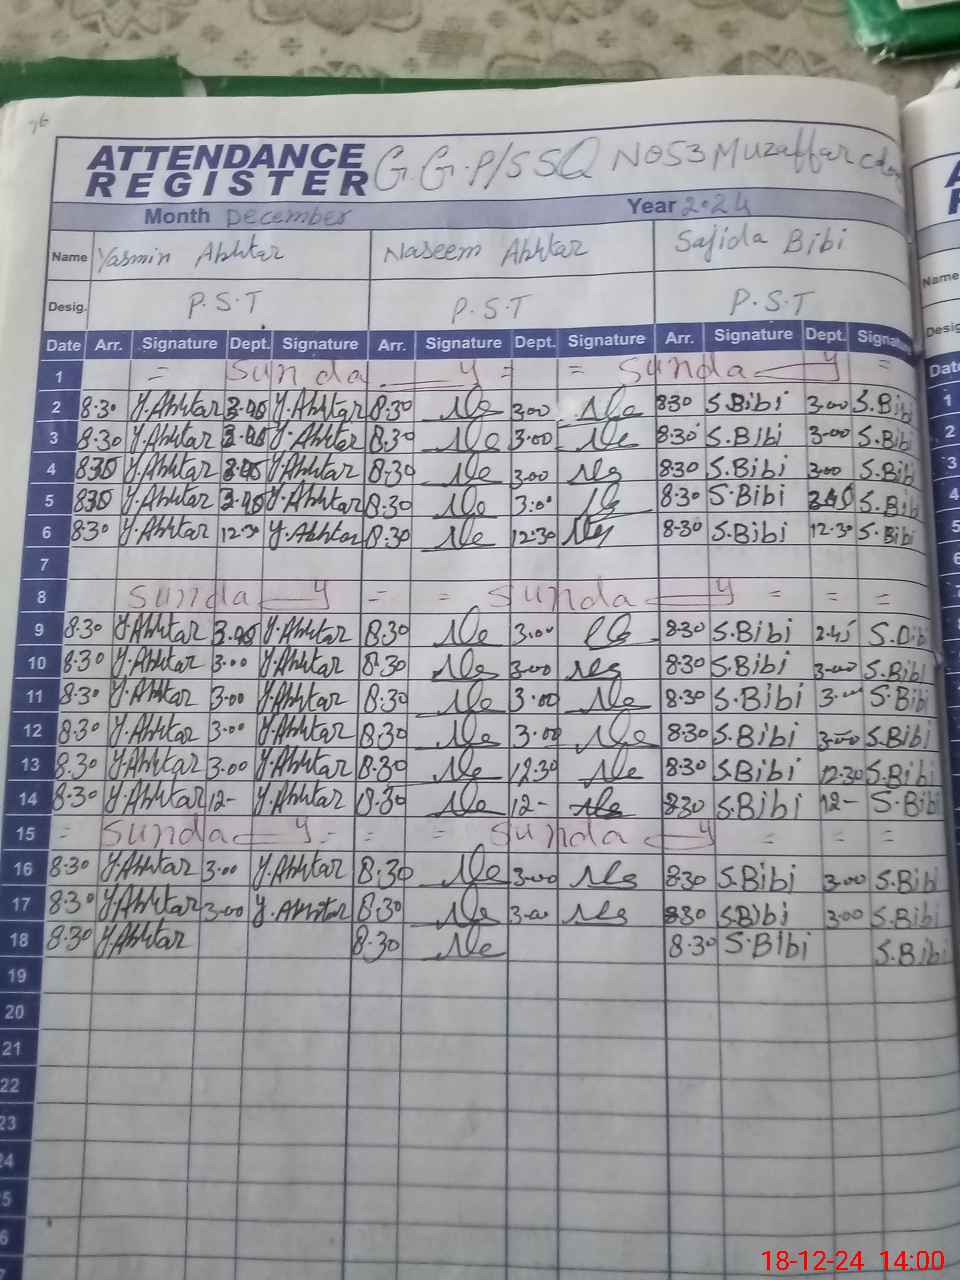 76
ATTENDANCE REGISTER G.G.P/S SQ NO53 Muzaffar
Month December Year 2024
Name Yasmin Akhtar Naseem Akhtar Sajida Bibi
Desig. P.S.T P.S.T P.S.T
Date Arr. Signature Dept. Signature Arr. Signature Dept. Signature Arr. Signature Dept. Signature
1 = Sunday = = Sunday =
2 8.30 Y.Akhtar Y.Akhtar 8.30 3.00 8.30 S.Bibi 3.00 S.Bibi
3 8.30 Y.Akhtar Y.Akhtar 8.30 3.00 8.30 S.Bibi 3.00 S.Bibi
4 8.30 Y.Akhtar Y.Akhtar 8.30 3.00 8.30 S.Bibi 3.00 S.Bibi
5 8.30 Y.Akhtar Y.Akhtar 8.30 3.00 8.30 S.Bibi 2.45 S.Bibi
6 8.30 Y.Akhtar 12.30 Y.Akhtar 8.30 12.30 8.30 S.Bibi 12.30 S.Bibi
7
8 Sunday = = Sunday = = =
9 8.30 Y.Akhtar Y.Akhtar 8.30 3.00 8.30 S.Bibi 2.45 S.Bibi
10 8.30 Y.Akhtar 3.00 Y.Akhtar 8.30 3.00 8.30 S.Bibi 3.00 S.Bibi
11 8.30 Y.Akhtar 3.00 Y.Akhtar 8.30 3.00 8.30 S.Bibi 3.00 S.Bibi
12 8.30 Y.Akhtar 3.00 Y.Akhtar 8.30 3.00 8.30 S.Bibi 3.00 S.Bibi
13 8.30 Y.Akhtar 3.00 Y.Akhtar 8.30 12.30 8.30 S.Bibi 12.30 S.Bibi
14 8.30 Y.Akhtar 12- Y.Akhtar 8.30 12- 8.30 S.Bibi 12- S.Bibi
15 = Sunday = = = Sunday = = =
16 8.30 Y.Akhtar 3.00 Y.Akhtar 8.30 3.00 8.30 S.Bibi 3.00 S.Bibi
17 8.30 Y.Akhtar 3.00 Y.Akhtar 8.30 3.00 8.30 S.Bibi 3.00 S.Bibi
18 8.30 Y.Akhtar 8.30 8.30 S.Bibi S.Bibi
19
20
21
22
23
24
18-12-24 14:00